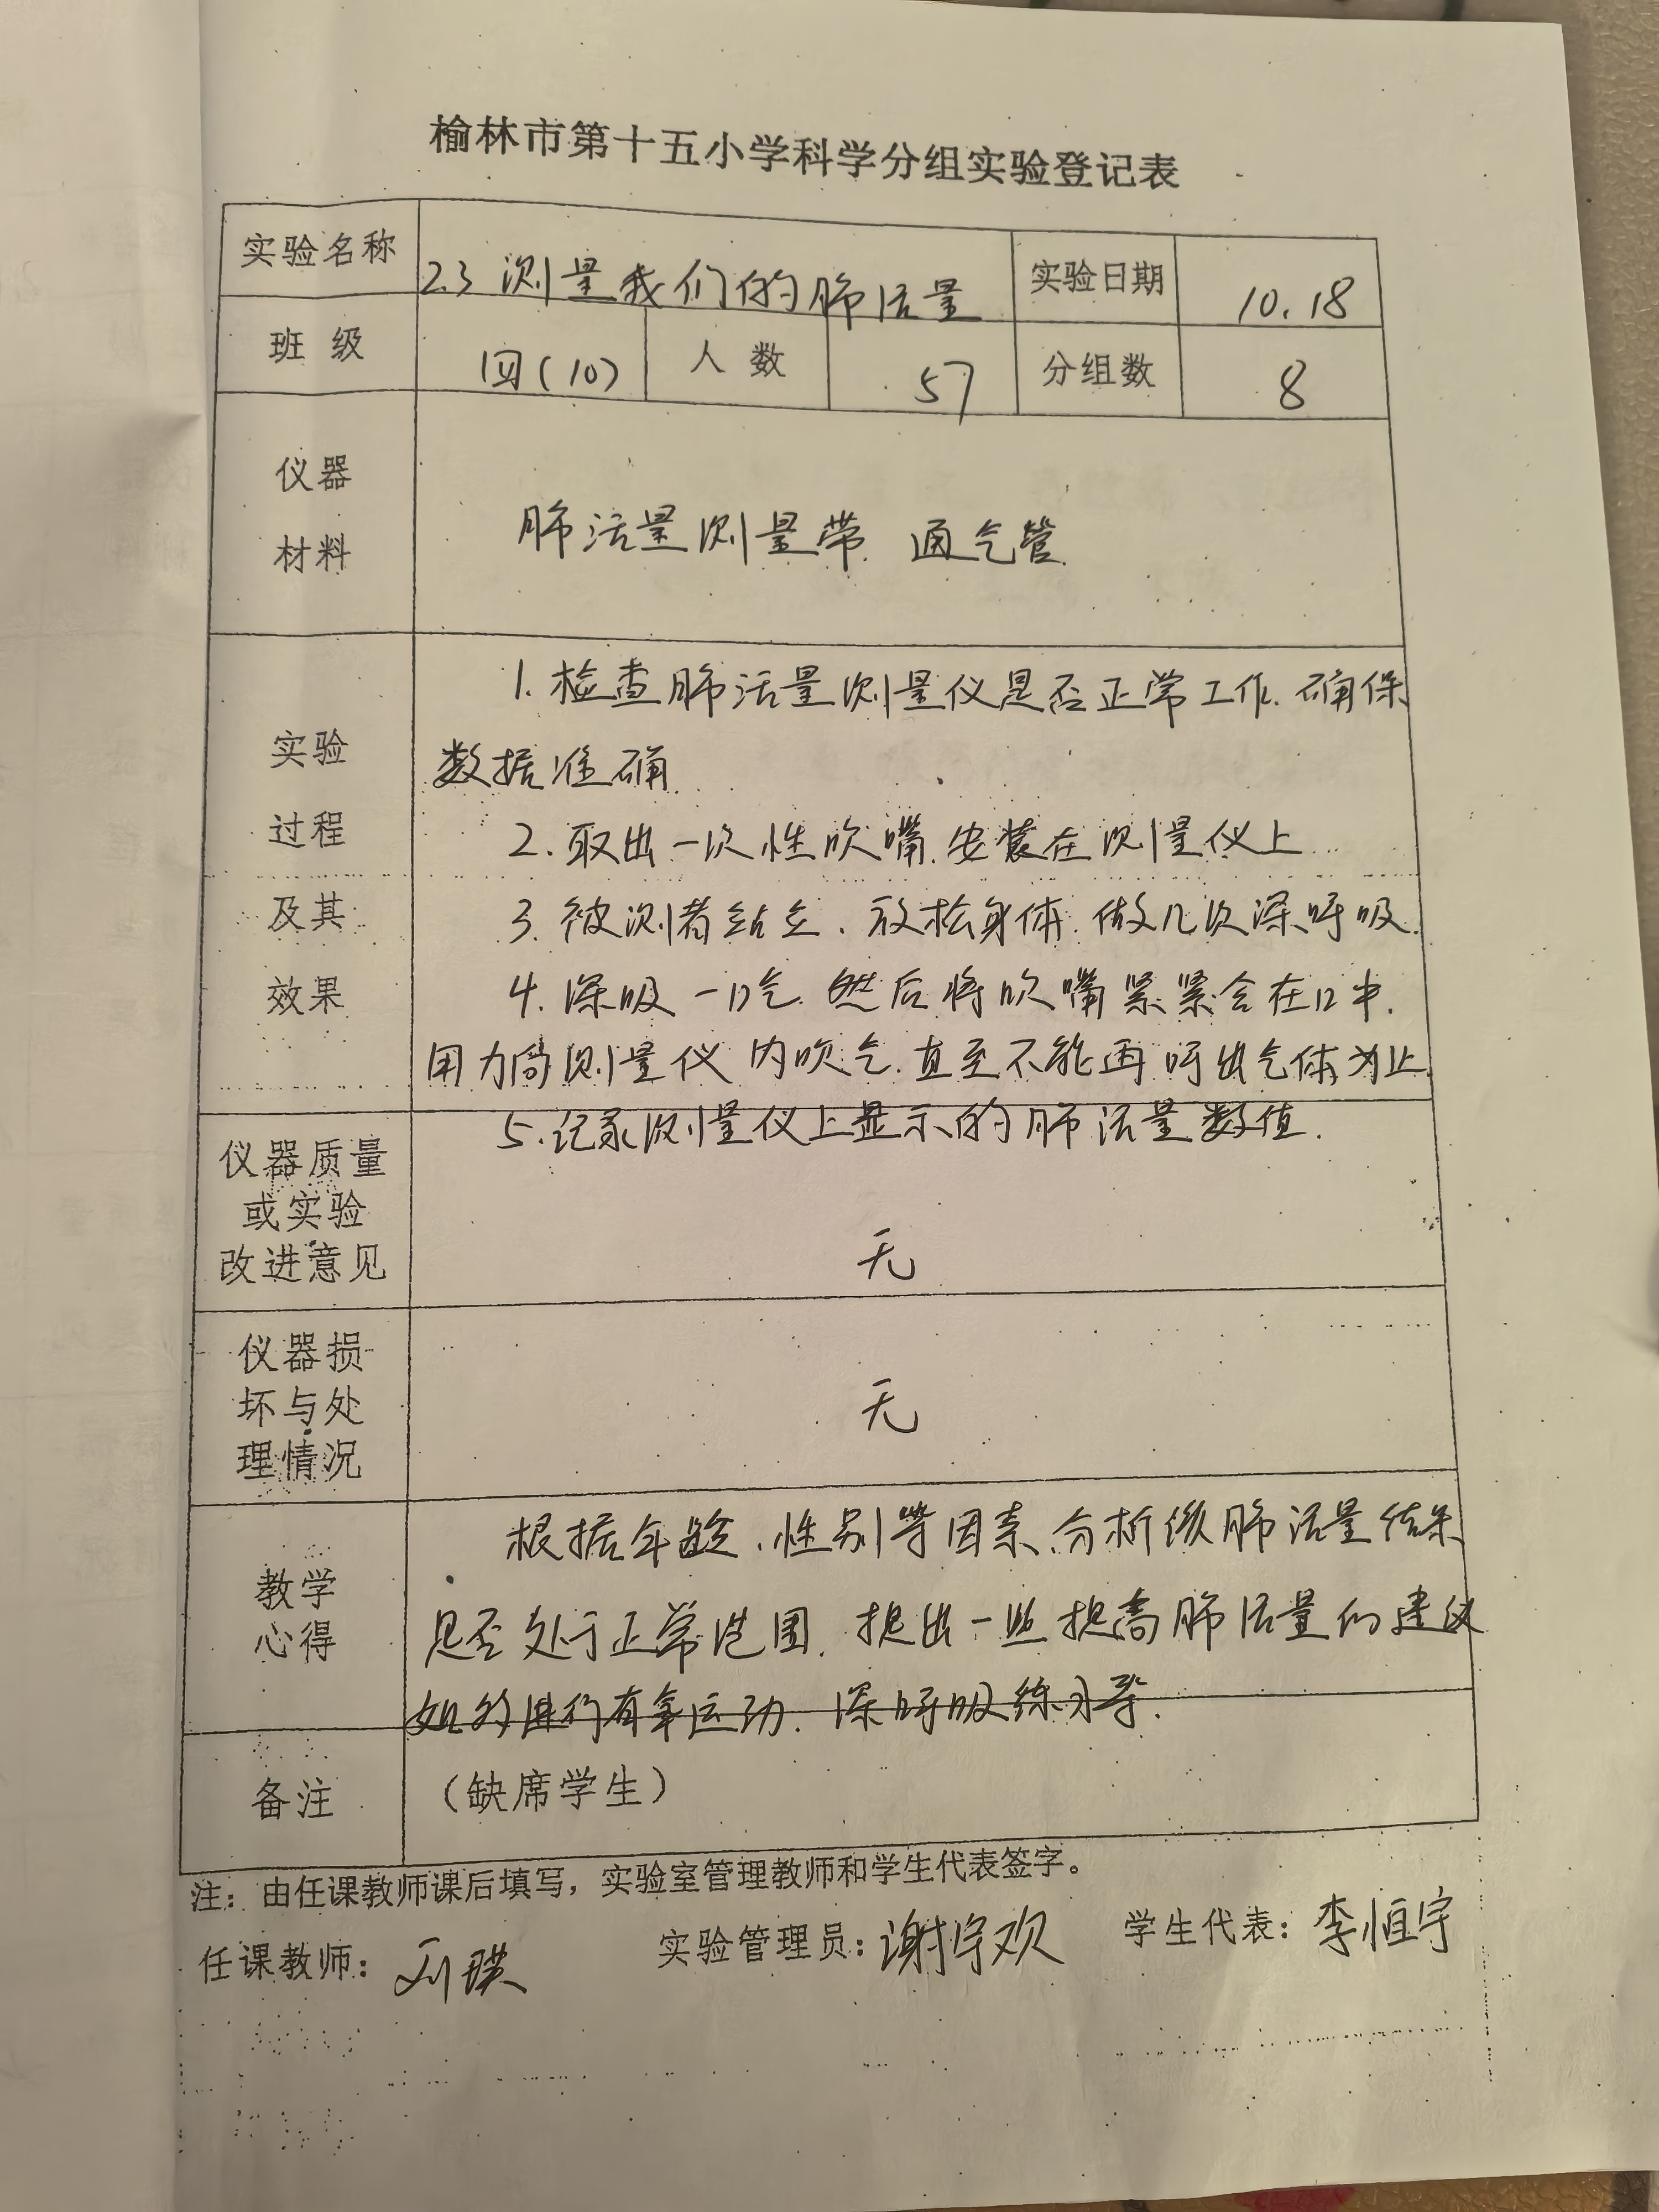 榆林市第十五小学科学分组实验登记表
实验名称 2.3 测量我们的肺活量 实验日期 10.18
班级 四(10) 人数 57 分组数 8
仪器
材料
肺活量测量带. 通气管.
实验
过程
及其
效果
1. 检查肺活量测量仪是否正常工作. 确保
数据准确.
2. 取出一次性吹嘴. 安装在测量仪上
3. 被测者站立、放松身体. 做几次深呼吸.
4. 深吸一口气. 然后将吹嘴紧紧含在口中.
用力向测量仪内吹气. 直至不能再呼出气体为止.
5. 记录测量仪上显示的肺活量数值.
仪器质量
或实验
改进意见
无
仪器损
坏与处
理情况
无
教学
心得
根据年龄、性别等因素、分析肺活量结果
是否处于正常范围. 提出一些提高肺活量的建议
如多进行有氧运动. 深呼吸练习等.
备注 （缺席学生）
注：由任课教师课后填写，实验室管理教师和学生代表签字。
任课教师：刘瑛 实验管理员：谢宇欢 学生代表：李恒宇